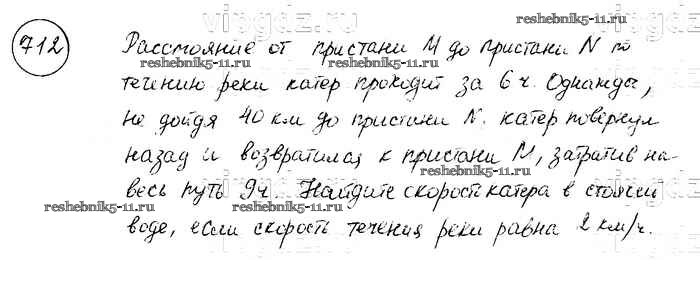 712
Расстояние от пристани M до пристани N по
reshebnik5-11.ru
reshebnik5-11.ru
reshebnik5-11.ru
течению реки катер проходит за 6 ч. Однажды,
не дойдя 40 км до пристани N, катер повернул
назад и возвратился к пристани M, затратив на
reshebnik5-11.ru
reshebnik5-11.ru
reshebnik5-11.ru
весь путь 9ч. Найдите скорость катера в стоячей
воде, если скорость течения реки равна 2 км/ч.